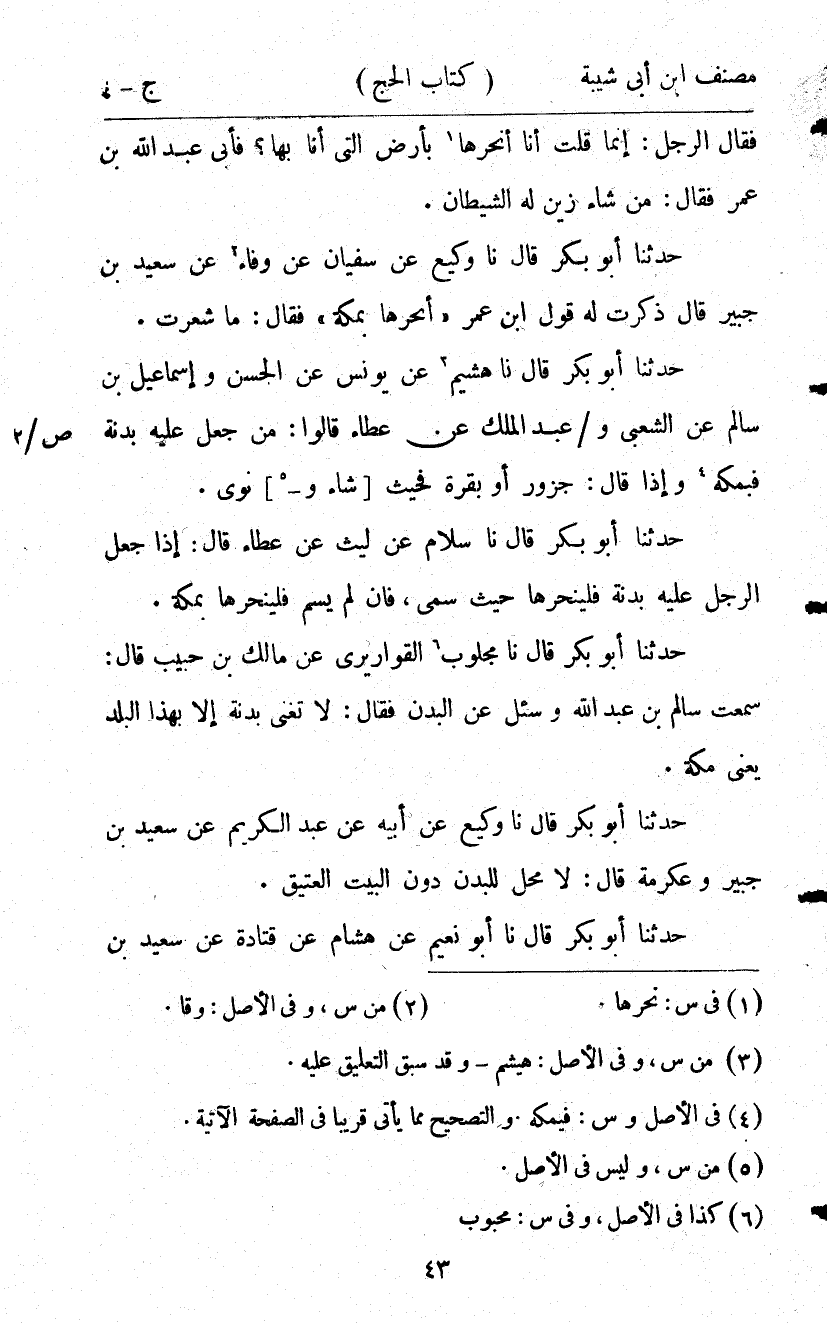 مصنف ابن أبى شيبة ( كتاب الحج ) ج – ٤
فقال الرجل : إنما قلت أنا أنحرها١ بأرض التى أنا بها ؟ فأبى عبد الله بن
عمر فقال : من شاء زين له الشيطان .
حدثنا أبو بكر قال نا وكيع عن سفيان عن وفاء٢ عن سعيد بن
جبير قال ذكرت له قول ابن عمر « أنحرها بمكة » فقال : ما شعرت .
حدثنا أبو بكر قال نا هشيم٣ عن يونس عن الحسن و إسماعيل بن
سالم عن الشعبى و / عبد الملك عن عطاء قالوا : من جعل عليه بدنة ص/٢
فبمكه٤ و إذا قال : جزور أو بقرة فحيث [ شاء و -٥ ] نوى .
حدثنا أبو بكر قال نا سلام عن ليث عن عطاء قال : إذا جعل
الرجل عليه بدنة فلينحرها حيث سمى ، فان لم يسم فلينحرها بمكة .
حدثنا أبو بكر قال نا مجلوب٦ القواريرى عن مالك بن حبيب قال :
سمعت سالم بن عبد الله و سئل عن البدن فقال : لا تغنى بدنة إلا بهذا البلد
يعنى مكة .
حدثنا أبو بكر قال نا وكيع عن أبيه عن عبد الكريم عن سعيد بن
جبير و عكرمة قال : لا محل للبدن دون البيت العتيق .
حدثنا أبو بكر قال نا أبو نعيم عن هشام عن قتادة عن سعيد بن
(١) فى س : نحرها . (٢) من س ، و فى الأصل : وقا .
(٣) من س ، و فى الأصل : هيشم – و قد سبق التعليق عليه .
(٤) فى الأصل و س : فيمكه . و التصحيح مما يأتى قريبا فى الصفحة الآتية .
(٥) من س ، و ليس فى الأصل .
(٦) كذا فى الأصل ، و فى س : محبوب
٤٣